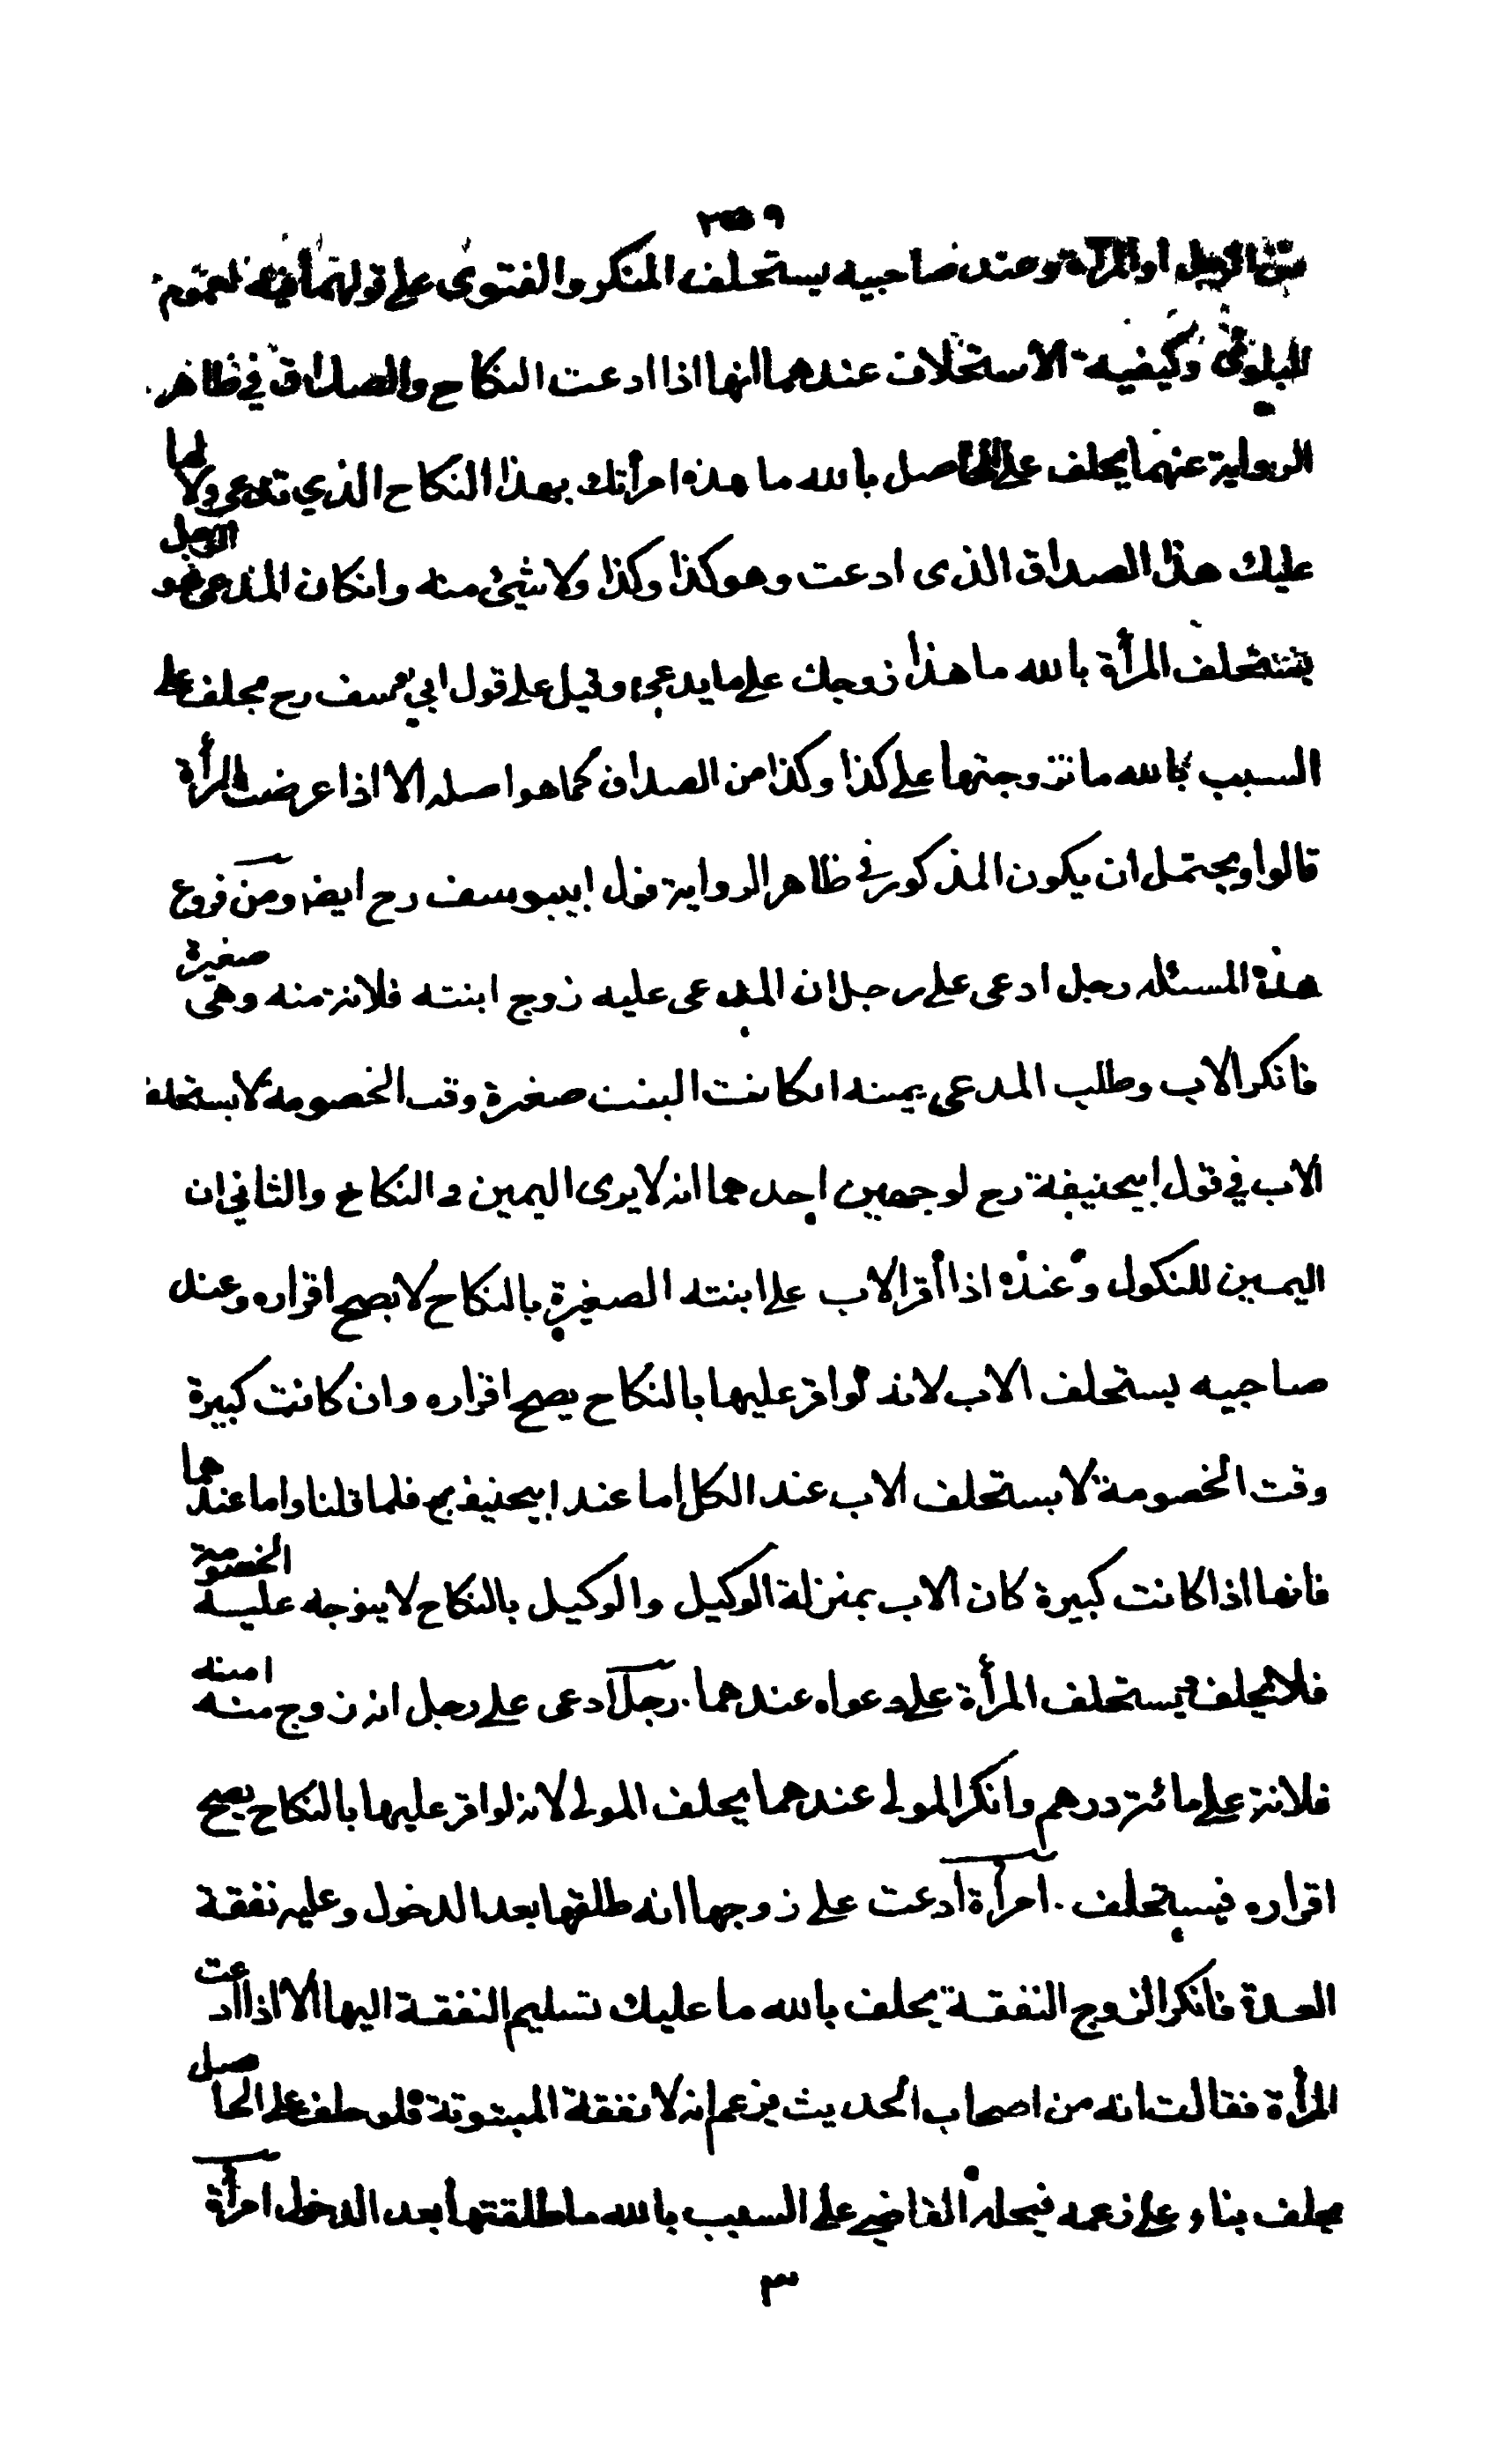 ٣٥٩
من الرجل او المرأة وعند صاحبيه يستحلف المنكر والفتوى على قولهما فيه لعموم
البلوى وكيفية الاستحلاف عندهما انها اذا ادعت النكاح والصداق في ظاهر
الرواية عنهما يحلف على الحاصل بالله ما هذه امرأتك بهذا النكاح الذي تدعى ولا لها
عليك هذا الصداق الذى ادعت وهو كذا وكذا ولا شيئ منه وانكان المدعى هو الرجل
يستحلف المرأة بالله ما هذا زوجك على ما يدعى وقيل على قول ابي يوسف رح يحلف على
السبب بالله ما تزوجتها على كذا وكذا من الصداق كما هو اصله الا اذا عرضت المرأة
قالوا ويحتمل ان يكون المذكور في ظاهر الرواية قول ابيوسف رح ايضا ومن فروع
هذه المسئله رجل ادعى على رجل ان المدعى عليه زوج ابنته فلانة منه وهى صغيرة
فانكر الاب وطلب المدعى يمينه انكانت البنت صغيرة وقت الخصومة لا يستحلف
الاب في قول ابيحنيفة رح لوجهين احدهما انه لا يرى اليمين في النكاح والثاني ان
اليمين للنكول وعنده اذا أقر الاب على ابنته الصغيرة بالنكاح لا يصح اقراره وعند
صاحبيه يستحلف الاب لانه لو اقر عليها بالنكاح يصح اقراره وان كانت كبيرة
وقت الخصومة لا يستحلف الاب عند الكل اما عند ابيحنيفة رح فلما قلنا واما عندهما
فانها اذا كانت كبيرة كان الاب بمنزلة الوكيل والوكيل بالنكاح لا يتوجه عليه الخصومة
فلا يحلف ويستحلف المرأة على دعواه عندهما. رجل ادعى على رجل انه زوج منه امته
فلانة على مائة درهم وانكر المولى عندهما يحلف المولى لانه لو اقر عليها بالنكاح يصح
اقراره فيستحلف. امرأة ادعت على زوجها انه طلقها بعد الدخول وعليه نفقة
العدة فانكر الزوج النفقة يحلف بالله ما عليك تسليم النفقة اليها الا اذا ادعت
المرأة فقالت انه من اصحاب الحديث يزعم انه لا نفقة المبتوتة فلو حلف على الحاصل
يحلف بناء على زعمه فيحلفه القاضي على السبب بالله ما طلقتها بعد الدخول امرأة
٣